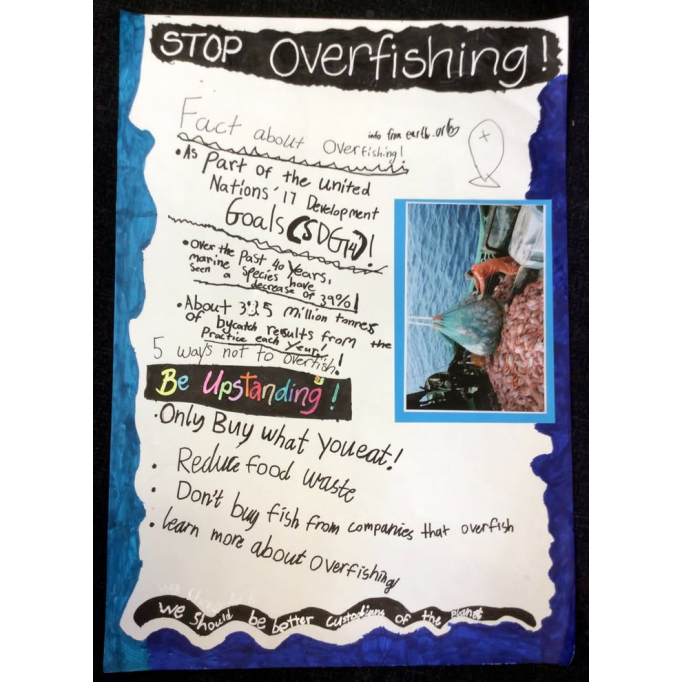 STOP Overfishing!
Fact about Overfishing!
info from earth.org
• As Part of the united
Nations' 17 Development
Goals (SDG14)!
• Over the Past 40 Years,
marine species have
seen a decrease of 39%!
• About 3:35 million tonnes
of bycatch results from the
Practice each Year!
5 ways not to overfish!
Be Upstanding!
• Only Buy what You eat!
• Reduce food waste
• Don't buy fish from companies that overfish
• learn more about overfishing!
we should be better custodians of the planet